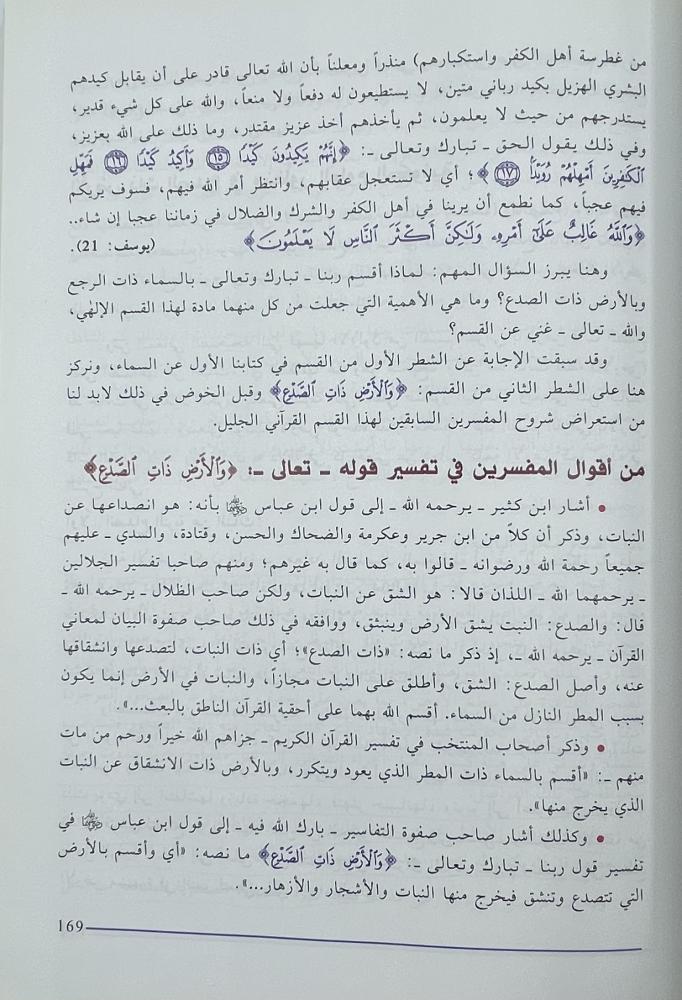 من غطرسة أهل الكفر واستكبارهم) منذراً ومعلناً بأن الله تعالى قادر على أن يقابل كيدهم
البشري الهزيل بكيد رباني متين، لا يستطيعون له دفعاً ولا منعاً، والله على كل شيء قدير،
يستدرجهم من حيث لا يعلمون، ثم يأخذهم أخذ عزيز مقتدر، وما ذلك على الله بعزيز،
وفي ذلك يقول الحق ـ تبارك وتعالى ـ: ﴿إِنَّهُمْ يَكِيدُونَ كَيْدًا ﴿١٥﴾ وَأَكِيدُ كَيْدًا ﴿١٦﴾ فَمَهِّلِ
الْكَٰفِرِينَ أَمْهِلْهُمْ رُوَيْدًۢا ﴿١٧﴾﴾؛ أي لا تستعجل عقابهم، وانتظر أمر الله فيهم، فسوف يريكم
فيهم عجباً، كما نطمع أن يرينا في أهل الكفر والشرك والضلال في زماننا عجبا إن شاء..
﴿وَاللَّهُ غَالِبٌ عَلَىٰٓ أَمْرِهِۦ وَلَٰكِنَّ أَكْثَرَ النَّاسِ لَا يَعْلَمُونَ﴾ (يوسف: 21).
وهنا يبرز السؤال المهم: لماذا أقسم ربنا ـ تبارك وتعالى ـ بالسماء ذات الرجع
وبالأرض ذات الصدع؟ وما هي الأهمية التي جعلت من كل منهما مادة لهذا القسم الإلهي،
والله ـ تعالى ـ غني عن القسم؟
وقد سبقت الإجابة عن الشطر الأول من القسم في كتابنا الأول عن السماء، ونركز
هنا على الشطر الثاني من القسم: ﴿وَالْأَرْضِ ذَاتِ الصَّدْعِ﴾ وقبل الخوض في ذلك لابد لنا
من استعراض شروح المفسرين السابقين لهذا القسم القرآني الجليل.
من أقوال المفسرين في تفسير قوله ـ تعالى ـ: ﴿وَالْأَرْضِ ذَاتِ الصَّدْعِ﴾
• أشار ابن كثير ـ يرحمه الله ـ إلى قول ابن عباس رضي الله عنهما بأنه: هو انصداعها عن
النبات، وذكر أن كلاً من ابن جرير وعكرمة والضحاك والحسن، وقتادة، والسدي ـ عليهم
جميعاً رحمة الله ورضوانه ـ قالوا به، كما قال به غيرهم؛ ومنهم صاحبا تفسير الجلالين
ـ يرحمهما الله ـ اللذان قالا: هو الشق عن النبات، ولكن صاحب الظلال ـ يرحمه الله ـ
قال: والصدع: النبت يشق الأرض وينبثق، ووافقه في ذلك صاحب صفوة البيان لمعاني
القرآن ـ يرحمه الله ـ، إذ ذكر ما نصه: «ذات الصدع»؛ أي ذات النبات، لتصدعها وانشقاقها
عنه، وأصل الصدع: الشق، وأطلق على النبات مجازاً، والنبات في الأرض إنما يكون
بسبب المطر النازل من السماء. أقسم الله بهما على أحقية القرآن الناطق بالبعث...».
• وذكر أصحاب المنتخب في تفسير القرآن الكريم ـ جزاهم الله خيراً ورحم من مات
منهم ـ: «أقسم بالسماء ذات المطر الذي يعود ويتكرر، وبالأرض ذات الانشقاق عن النبات
الذي يخرج منها».
• وكذلك أشار صاحب صفوة التفاسير ـ بارك الله فيه ـ إلى قول ابن عباس رضي الله عنهما في
تفسير قول ربنا ـ تبارك وتعالى ـ: ﴿وَالْأَرْضِ ذَاتِ الصَّدْعِ﴾ ما نصه: «أي وأقسم بالأرض
التي تتصدع وتنشق فيخرج منها النبات والأشجار والأزهار...».
169